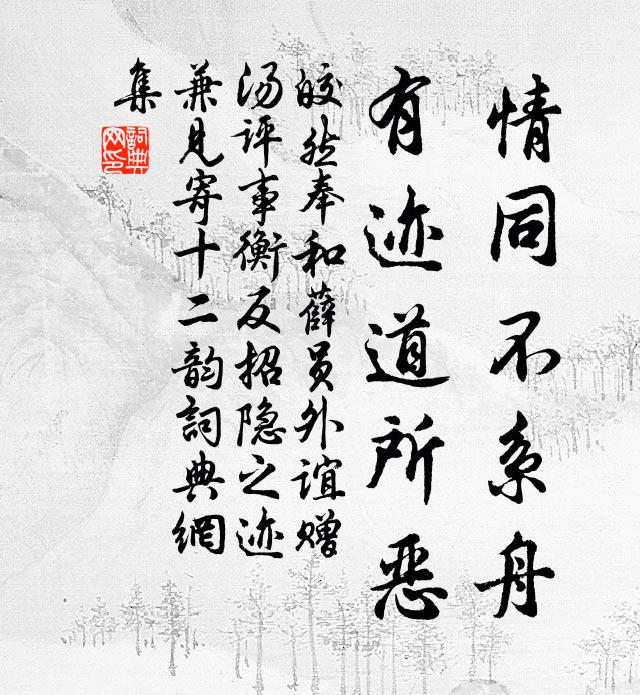 情同不系舟
有迹道所恶
皎然奉和薛员外谊赠
汤评事衡反招隐之迹
兼见寄十二韵詞典網
集
詞典
网印